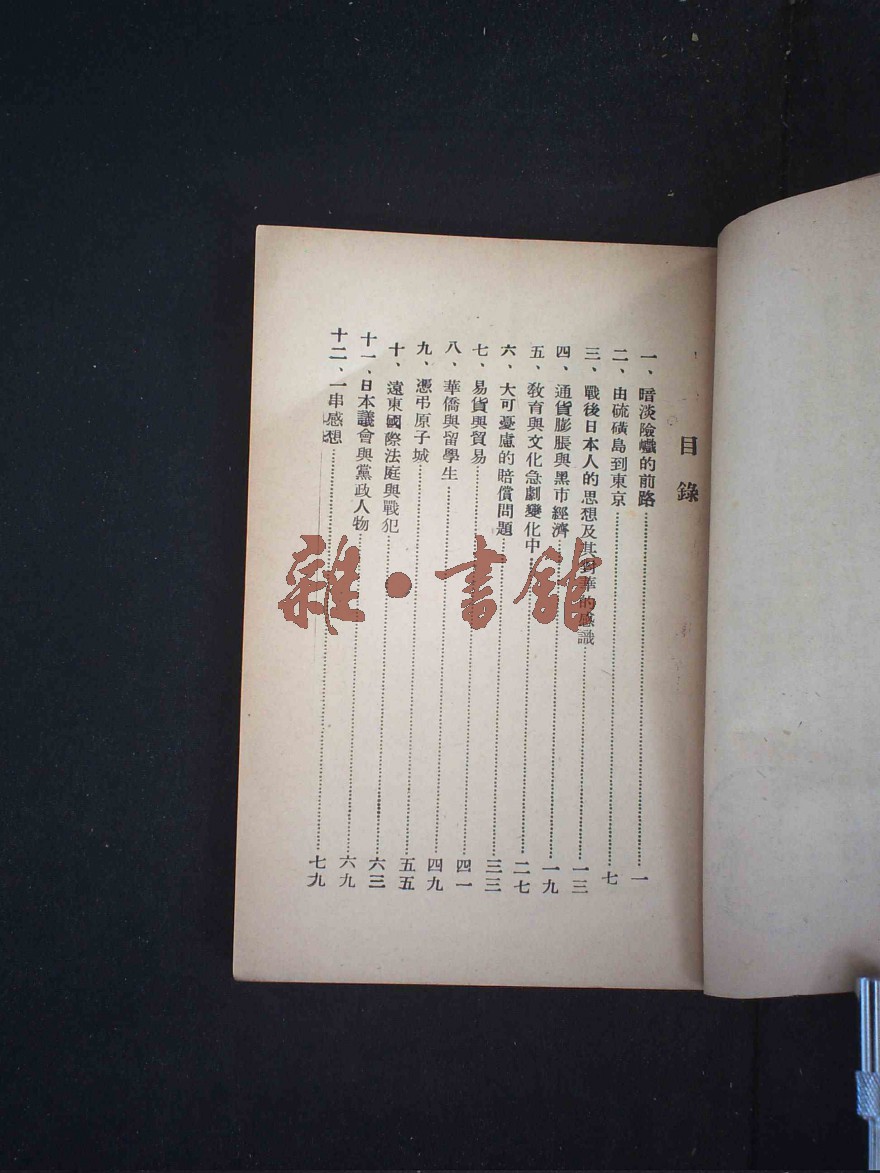 目錄
一、暗淡險巇的前路……一
二、由硫磺島到東京……七
三、戰後日本人的思想及其對華的感識……一三
四、通貨膨脹與黑市經濟……一九
五、教育與文化急劇變化中……二七
六、大可憂慮的賠償問題……三三
七、易貨與貿易……四一
八、華僑與留學生……四九
九、憑弔原子城……五五
十、遠東國際法庭與戰犯……六三
十一、日本議會與黨政人物……六九
十二、一串感想……七九
雜·書館